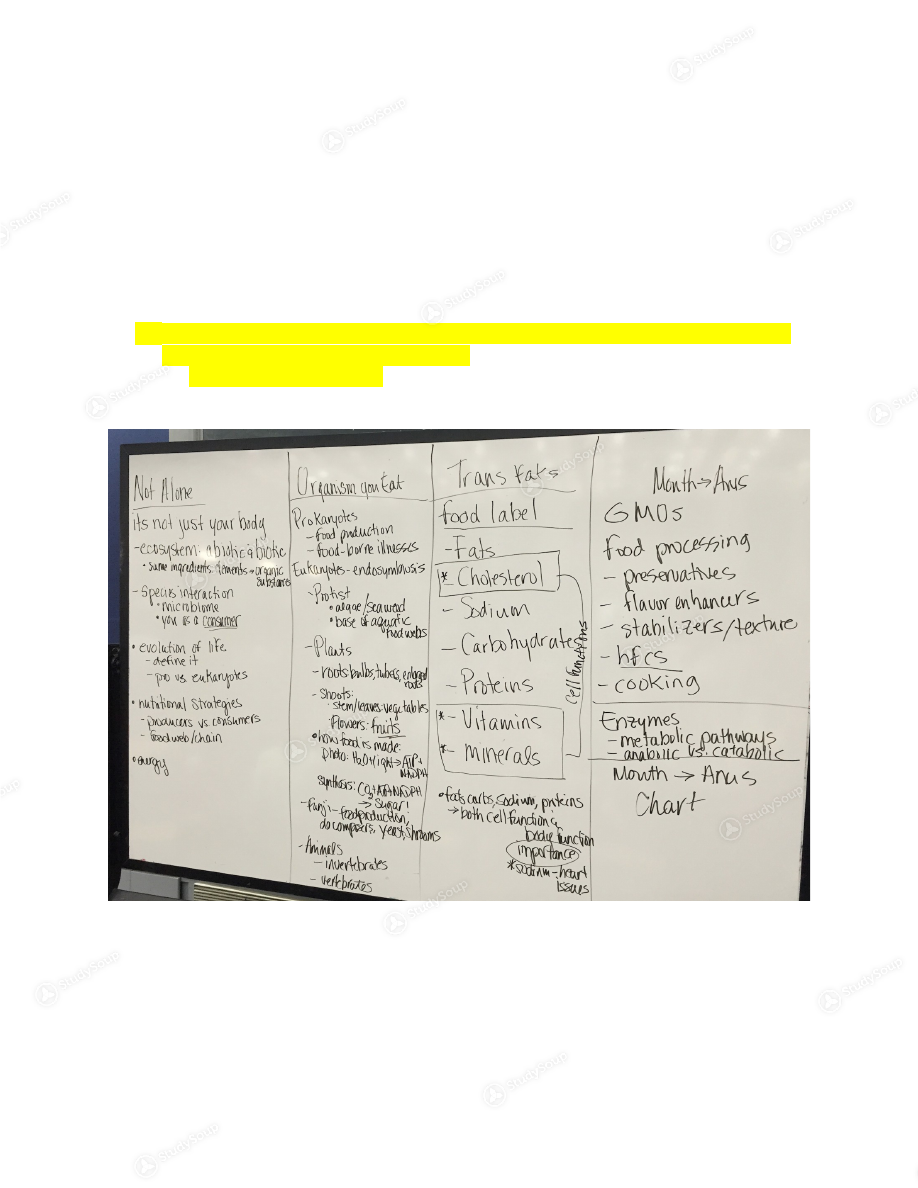 Not Alone
its not just your body
- ecosystem: abiotic & biotic
• same ingredients: elements → organic
substances
- Species interaction
• microbiome
• you as a consumer
• evolution of life
- define it
- pro vs eukaryotes
• nutritional strategies
- producers vs consumers
- food web/chain
• energy
Organism you Eat
Prokaryotes
- food production
- food-borne illnesses
Eukaryotes - endosymbiosis
- Protist
• algae/seaweed
• base of aquatic
food webs
- Plants
- roots: bulbs, tubers, enlarged
roots
- Shoots:
stem/leaves: vegetables
flowers: fruits
• how food is made:
photo: H2O+light → ATP+
NADPH
synthesis: CO2+ATP+NADPH
→ sugar!
- Fungi - food production,
decomposers, yeast, shrooms
- Animals
- invertebrates
- vertebrates
Trans Fats
food label
- Fats
* - Cholesterol
- Sodium
- Carbohydrates
- Proteins
* - Vitamins
* - Minerals
cell functions
• fats, carbs, sodium, proteins
→ both cell function &
body function
importance
* sodium - heart
issues
Mouth → Anus
GMOs
food processing
- preservatives
- flavor enhancers
- stabilizers/texture
- hfcs
- cooking
Enzymes
- metabolic pathways
- anabolic vs. catabolic
Mouth → Anus
Chart
StudySoup
StudySoup
StudySoup
StudySoup
StudySoup
StudySoup
StudySoup
StudySoup
StudySoup
StudySoup
StudySoup
StudySoup
StudySoup